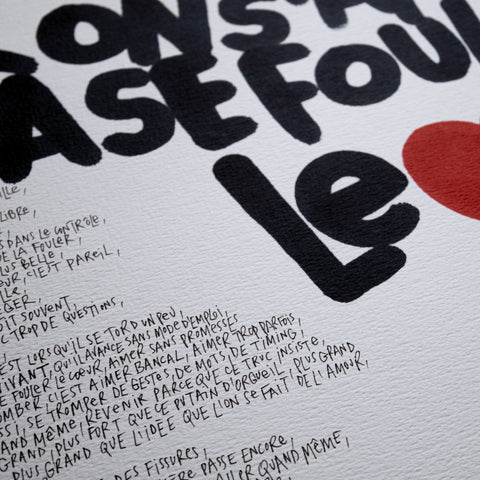 ONS
ÂSE FOU
Le
LIBRE,
S DANS LE CONTRÔLE,
DE LA FOULER,
PLUS BELLE,
EUR, C'EST PAREIL,
LLE,
EGER,
OIT SOUVENT,
C TROP DE QUESTIONS,
EST LORSQU'IL SE TORD UN PEU,
VIVANT, QU'IL AVANCE SANS MODE D'EMPLOI,
E FOULER LE CŒUR, AIMER SANS PROMESSES,
OMBER C'EST AIMER BANCAL, AIMER TROP PARFOIS,
SSI, SE TROMPER DE GESTES, DE MOTS, DE TIMING,
AND MÊME, REVENIR PARCE QUE CE TRUC INSISTE,
GRAND, PLUS FORT QUE CE PUTAIN D'ORGUEIL, PLUS GRAND
PLUS GRAND QUE L'IDÉE QUE L'ON SE FAIT DE L'AMOUR,
DES FISSURES,
PASSE ENCORE,
QUAND MÊME,